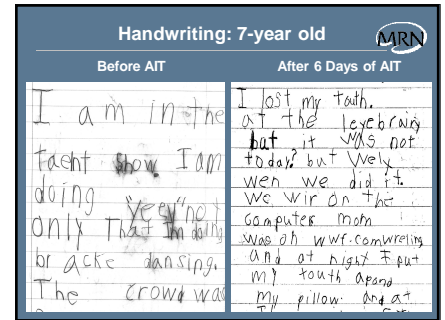 Handwriting: 7-year old
MRN
Before AIT
After 6 Days of AIT
I am in the
taeht show. I am
doing "yeey" not
only That Im doing
br acke dansing.
The crowd was
I lost my touth.
at the leyebrairy
but it was not
today? but wely
wen we did it.
We wir on the
computer mom
was on wwf.comwreling
and at night I put
my touth apond
my pillow. and at